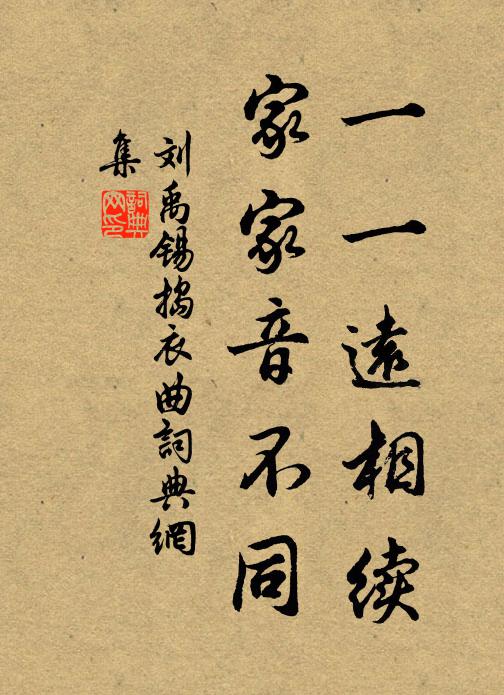 一一遠相续
家家音不同
刘禹锡捣衣曲詞典網
集
詞典网印